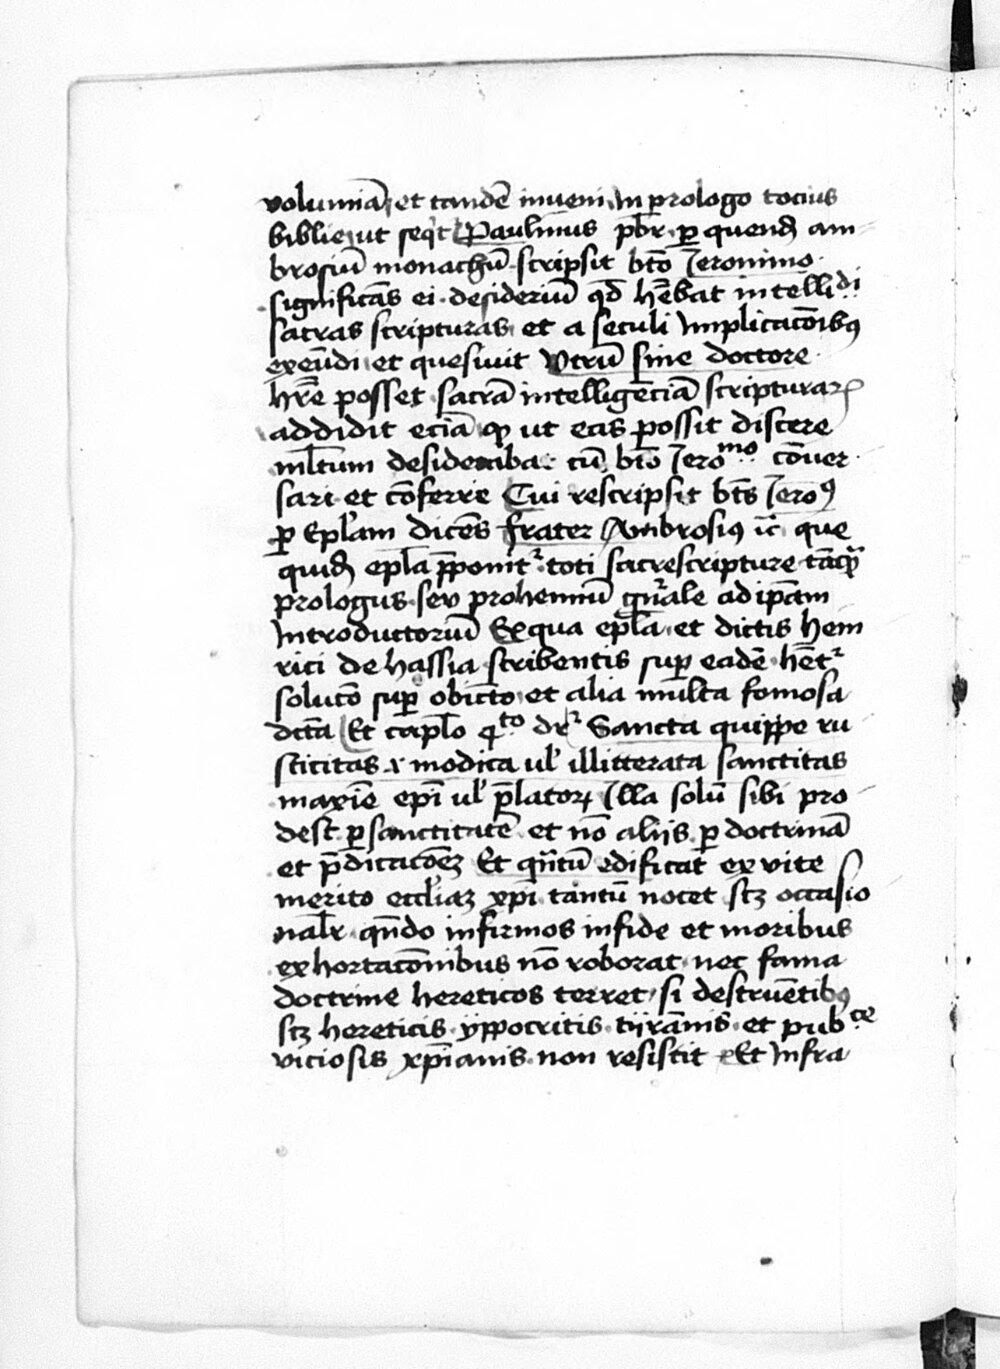 voluminā et tandē inueni in prologo tocius
biblie ut seqr̄t Paulinus p̄br̄ ꝑ quendā am
brosiū monachū scripsit bt̄o Jeronimo
significās ei desideriū qd̄ hēbat intelligēdi
sacras scripturas et a seculi implicacōibꝰ
exeūdi et quesiuit Vtrū sine doctore
hr̄e posset sacrā intelligēciā scripturaꝝ
addidit eciā qꝫ ut eas possit discere
ml̄tum desiderabat cū bt̄o Jeroᵐᵒ cōuer
sari et cōferre Cui rescripsit bt̄s Jeroꝰ
ꝑ Epl̄am dicēs frater Ambrosiꝰ ic̄ que
quidē epl̄a p̄ponit᷑ toti sacrescripture tāqꝫ
prologus seu prohemiū gn̄rale ad ip̄am
introductoriū Ex qua epl̄a et dictis hein
rici de hassia scribentis suꝑ eadē hēt᷑
solutō suꝑ obiectō et alia multa fomosa
dicta Et cap̄lo qᵗᵒ dr᷑ Sancta quippe ru
sticitas ⁊ modica ul̓ illitterata sanctitas
maxiē ep̄i ul̓ p̄latoꝝ Illa solū sibi pro
dest ꝑ sanctitatē et nō aliis ꝑ doctrinā
et p̄dicacōeꝫ Et qn̄tū edificat ex vite
merito eccl̄iaꝫ xp̄i tantū nocet scꝫ occasio
nalr̄ qn̄do infirmos in fide et moribus
exhortacōnibus nō roborat nec fama
doctrine hereticos terret si destruētibꝰ
scꝫ hereticis yppocritis tijrānis et pubᶜᵉ
viciosis xp̄ianis non resistit Et infra